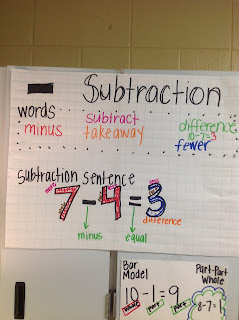 Subtraction
words
subtract
minus
takeaway
difference
10-7=3
fewer
Subtraction Sentence
7-4=3
difference
minus
equal
Bar
Model
Part-Part
Whole
10-1=9
whole part part
8-7=1